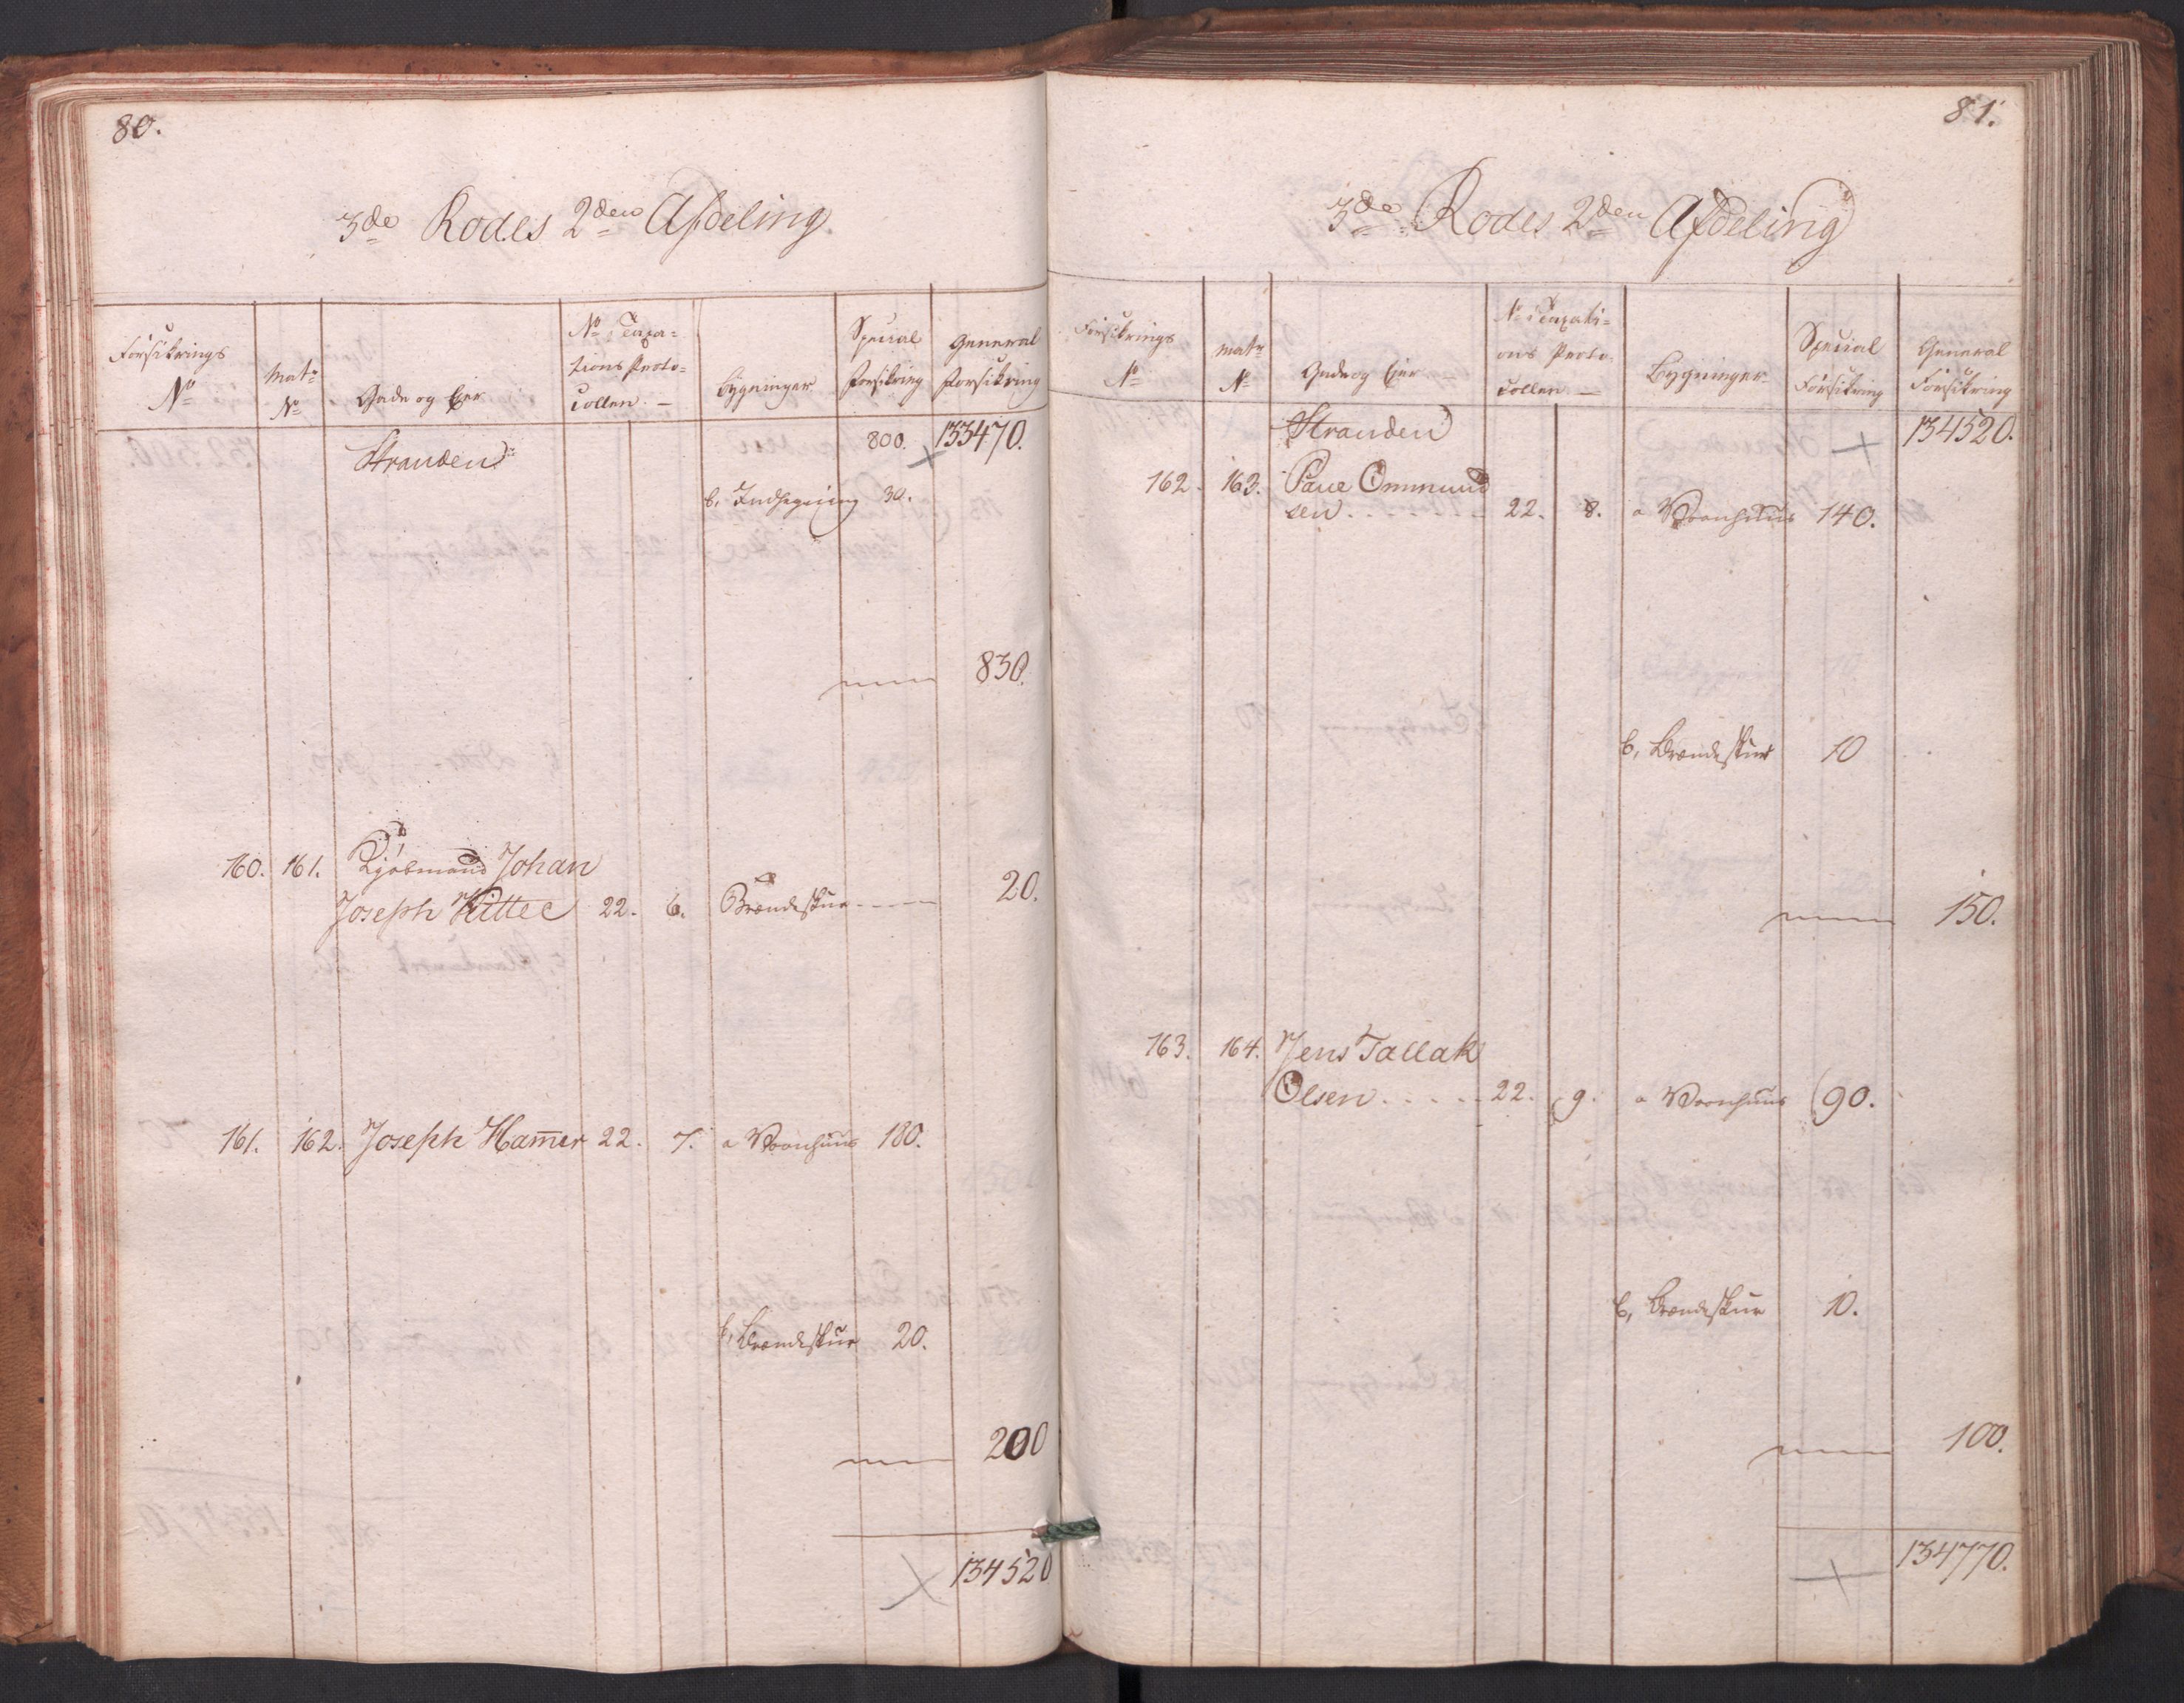 80.
3de Rodes 2den Afdeling.
Forsikrings No
Matr No
Gade og Eier
No i Taxa=
tions Proto=
collen. —
Bygninger
Special Forsikring
General Forsikring
Stranden
800. 133470.
b, Indhegning 30.
830.
160. 161. Kjøbmand Johan
Joseph 22. 6. Brændeskur 20.
161. 162. Joseph Ham̅er 22. 7. a Vaanhuus 180.
b, Brændeskur 20.
200
134520
81.
3de Rodes 2den Afdeling
Forsikrings No
Matr No
Gade og Eier
No i Taxati=
ons Proto=
collen —
Bygninger
Special Forsikring
General Forsikring
Stranden
134520.
162. 163. Ommund
sen 22. 8. a Vaanhuus 140.
b, Brændeskur 10
150.
163. 164. Jens Tallak
Olsen 22. 9. a Vaanhuus 90.
b, Brændeskur 10.
100.
134770.